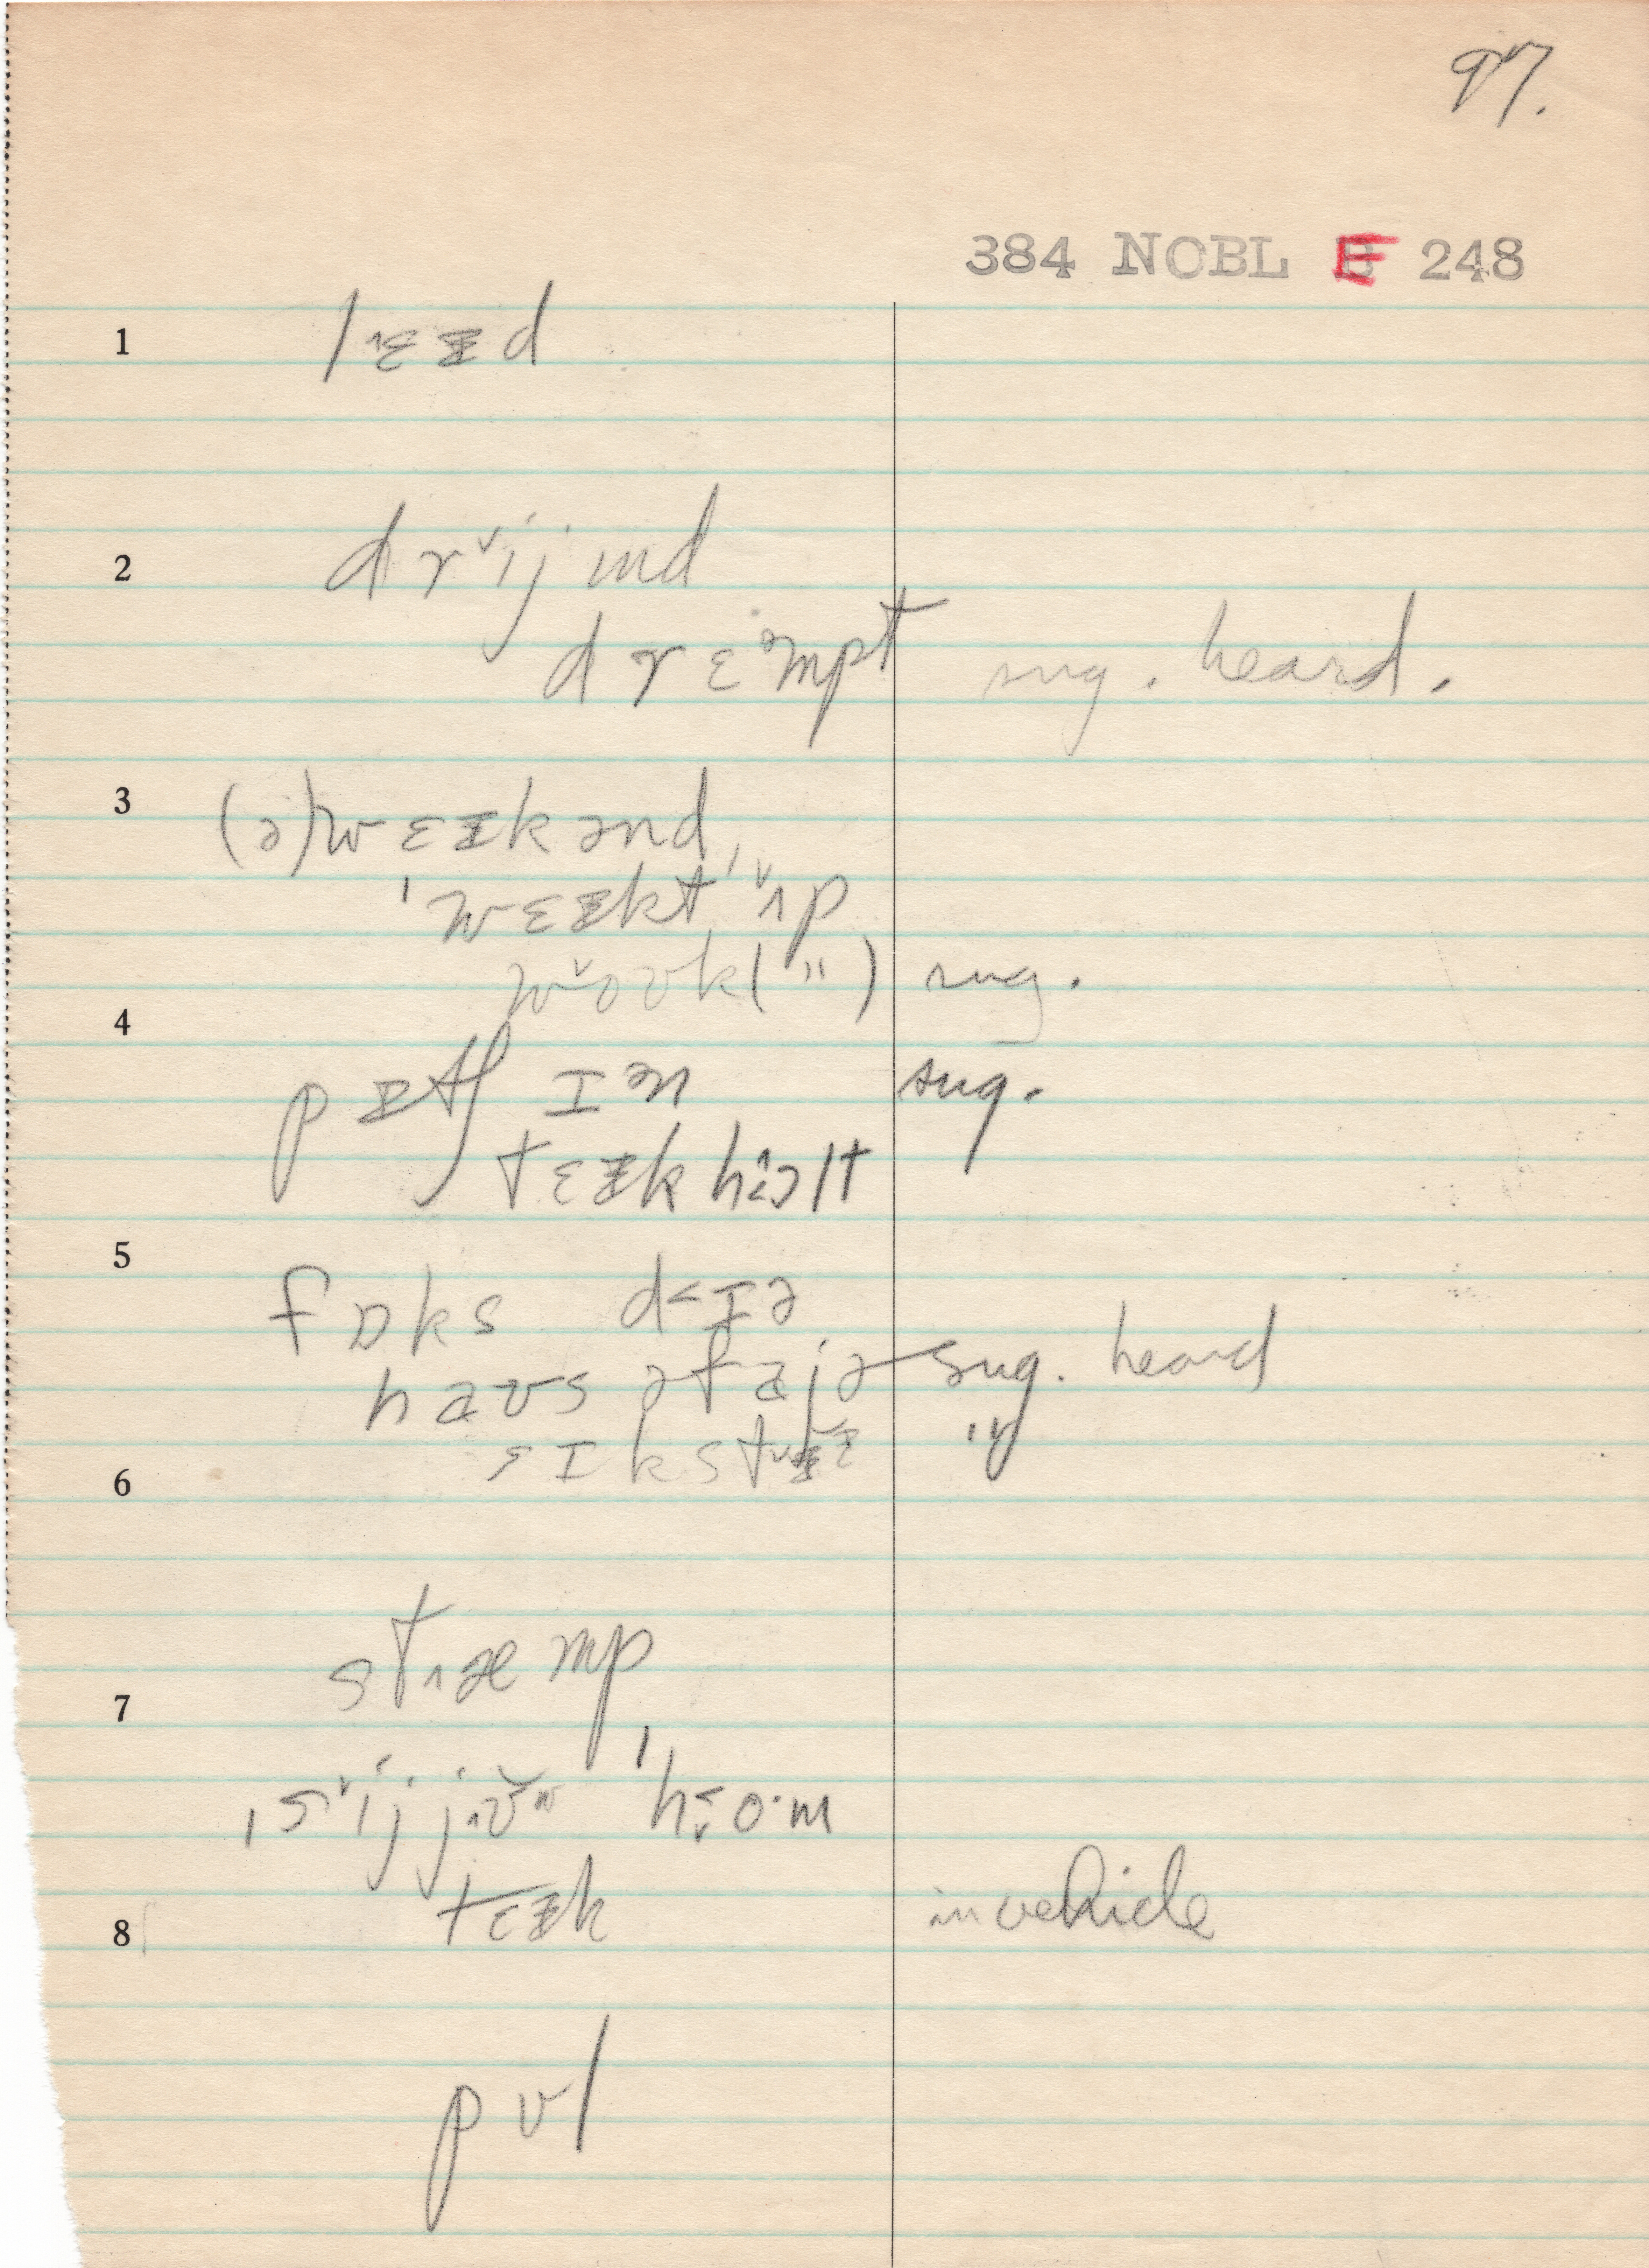 97.
384 NOBL E 248
1 lɛɪd
2 drijmd
drɛmpt sug. heard.
3 (ə)wɛɪkənd
'wɛɪkt 'ʌp
woʊk( " ) sug.
4 pɪtʃ ɪən sug.
tɛɪk hɔlt
5 fɒks dɪə
haʊs əfajə sug. heard
sɪkstɪɪ "
6
stæmp
7
ˌsij jʊw 'ho·m
tɛɪk in vehicle
8
pʊl